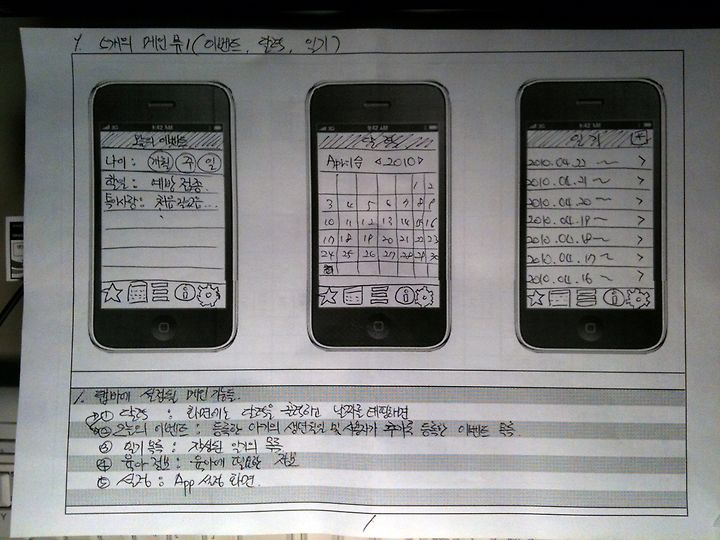 1. 5개의 메인 뷰1(이벤트, 달력, 일기)
3G 9:42 AM
오늘의 이벤트
나이: 개월 주 일
할일: 예방접종
특이사항:
3G 9:42 AM
달력
April <2010>
1 2
3 4 5 6 7 8 9
10 11 12 13 14 15 16
17 18 19 20 21 22 23
24 25 26 27 28 29 30
3G 9:42 AM
일기 +
2010.04.22 ~ >
2010.04.21 ~ >
2010.04.20 ~ >
2010.04.19 ~ >
2010.04.18 ~ >
2010.04.17 ~ >
2010.04.16 ~ >
1. 탭바에 설정될 메인 기능들.
① 달력 : 화면에는 달력을 출력하고 날짜를 테핑하면
② 오늘의 이벤트 : 등록한 아기의 생년월일 및 사용자가 추가로 등록한 이벤트 목록.
③ 일기 목록 : 작성된 일기의 목록
④ 육아 정보 : 육아에 필요한 정보
⑤ 설정 : App 설정 화면.
1